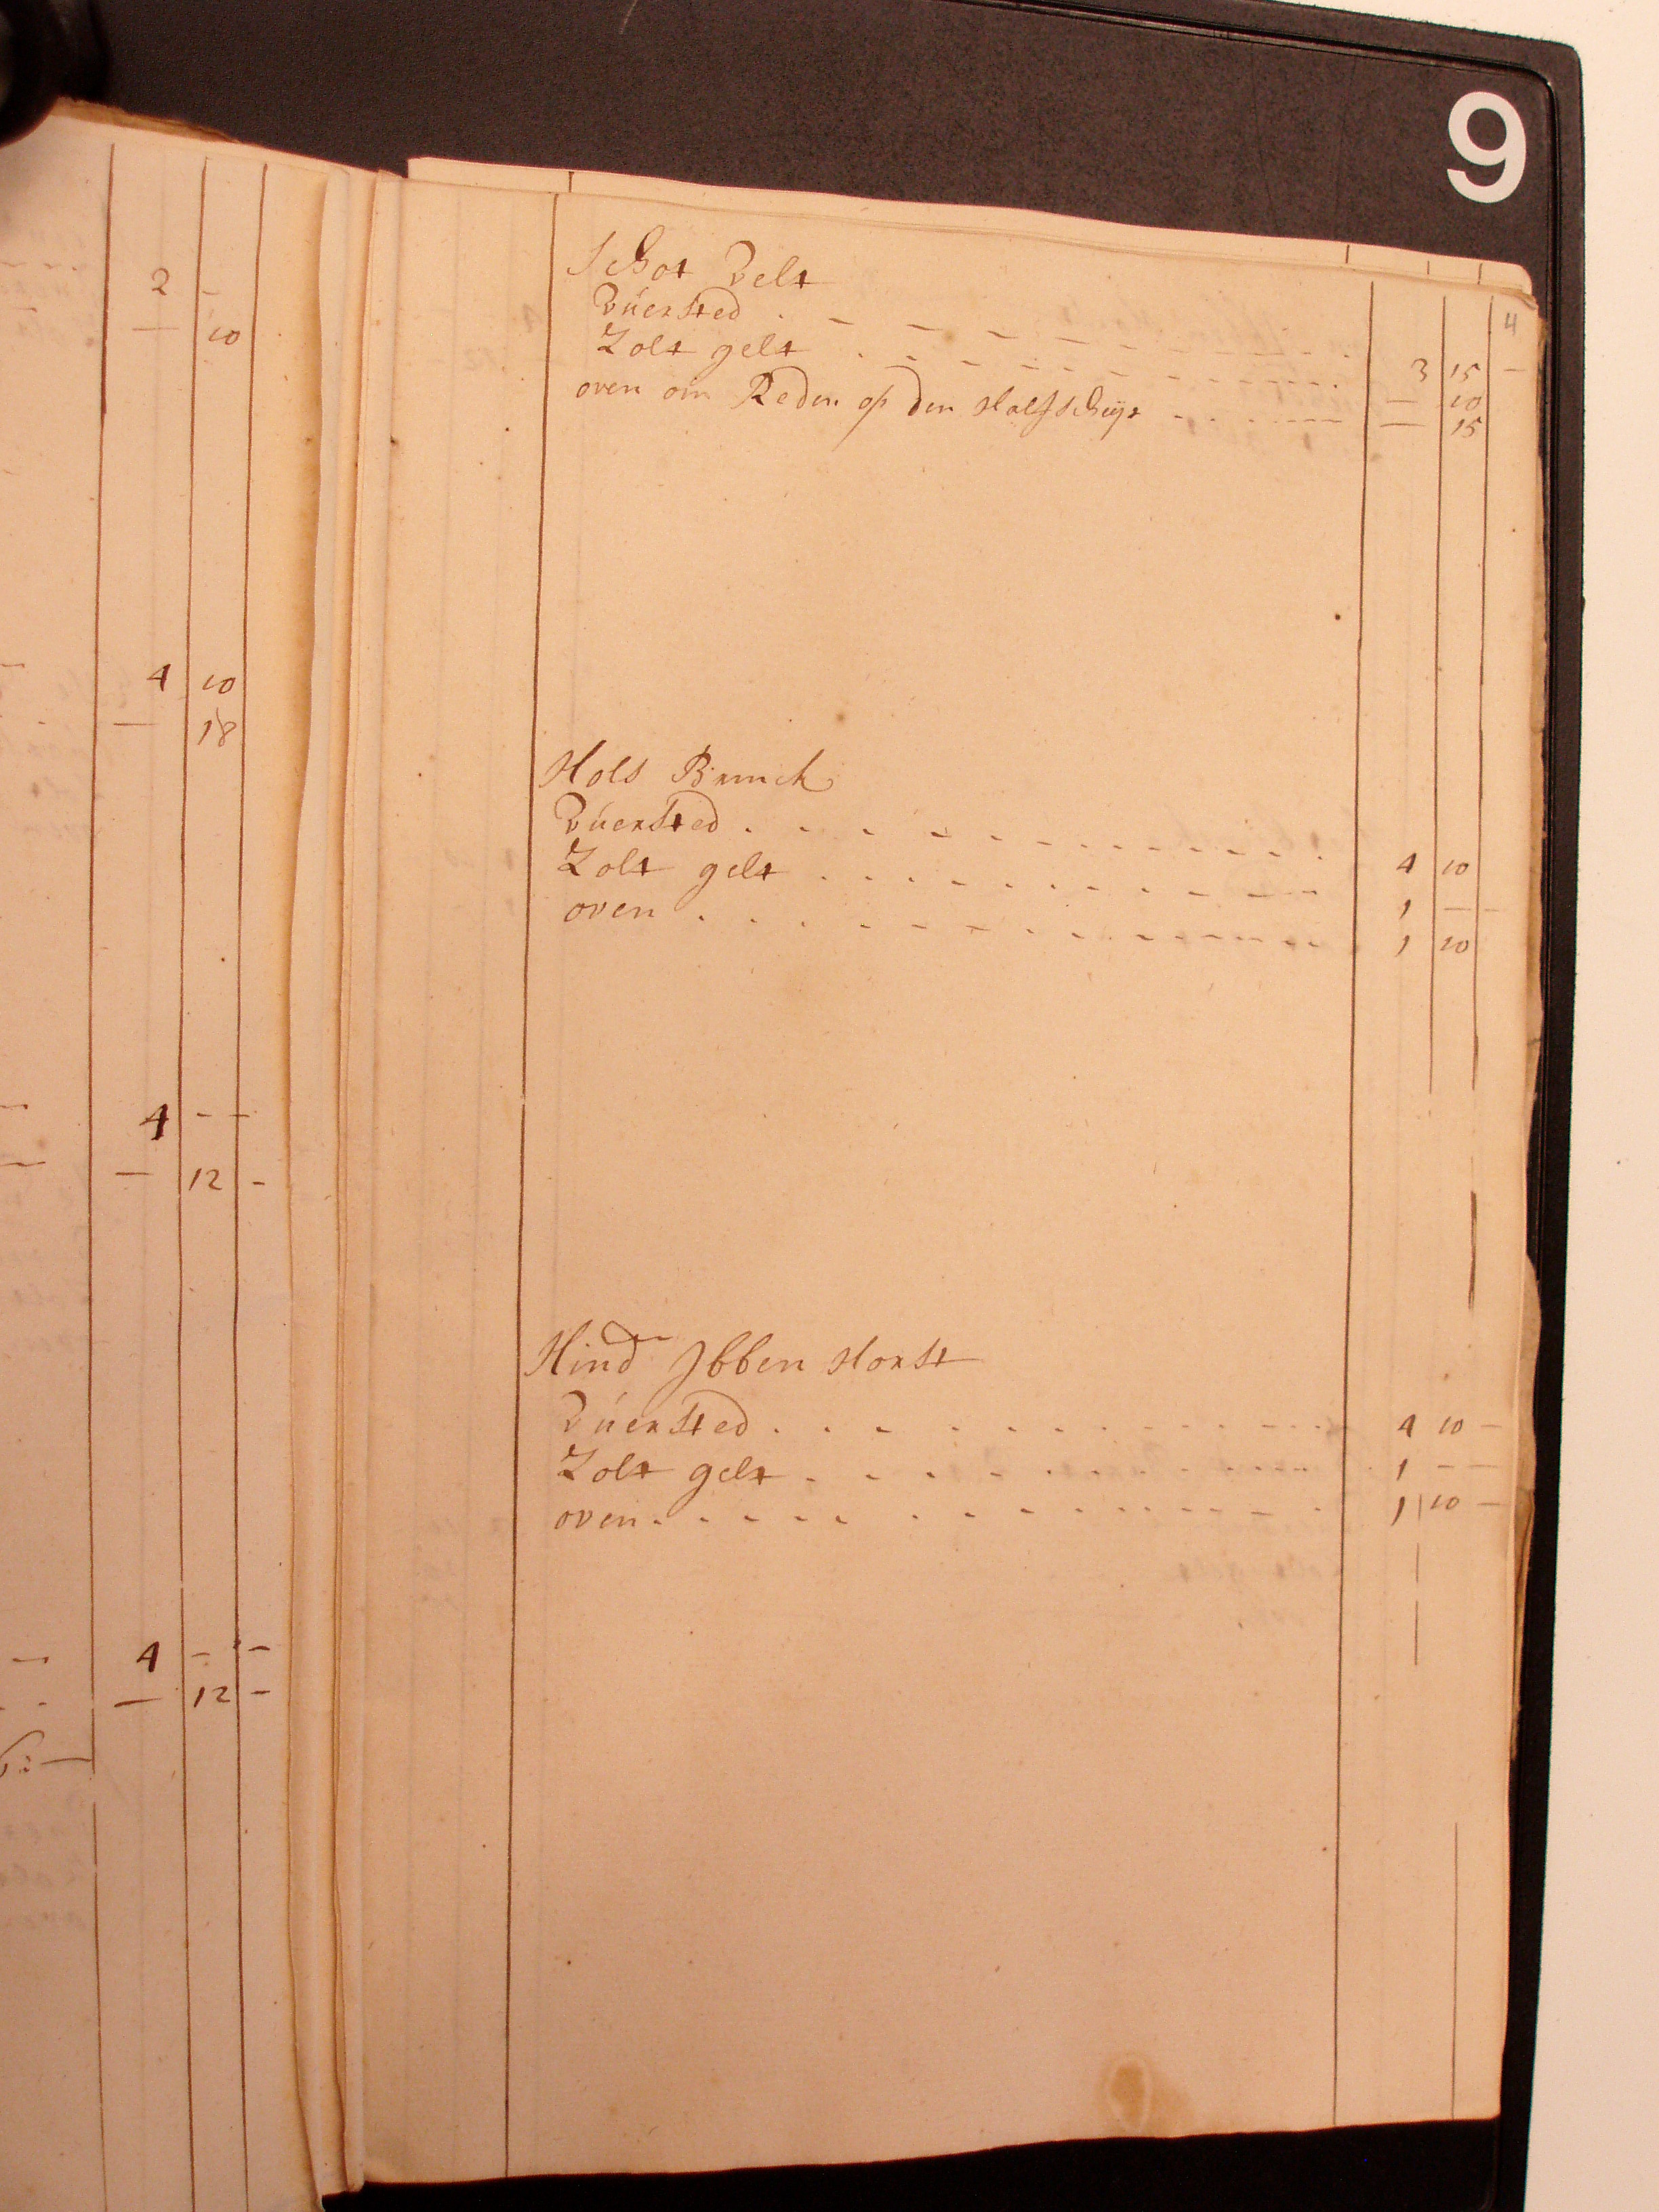 9
4
2 -
— 10
4 10
— 18
4 - -
— 12 -
4 - -
— 12 -
Schot Velt
Vúersted . - - - - - - - - . 3 15 -
Zolt gelt . - - - - - - - - . — 10
oven om Reden op den Halfscheyt - - - - — 15
Hols Brinck
Vúersted . . . - - - - - - - - . 4 10
Zolt gelt . . . . - - - - - - - 1 — -
oven . . . - - - - - - - - - 1 10
Hind Ibben Horst
Vúersted . . . - - - - - - - - 4 10 -
Zolt gelt . . - - - - - - - - - 1 - -
oven . . - - - - - - - - - - 1 10 -